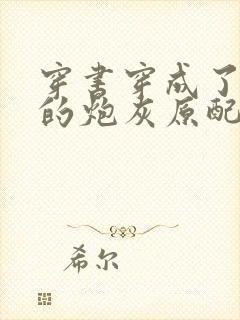 穿书穿成了
的炮灰原配
希尔